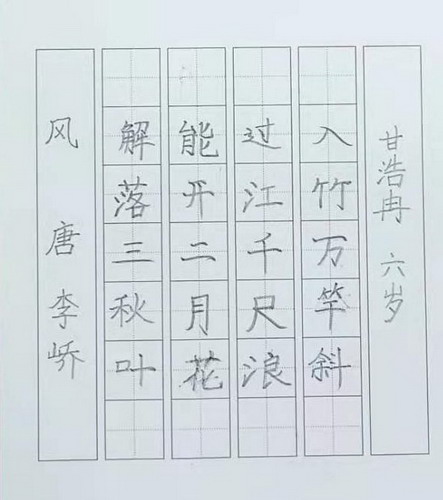 风 唐 李峤
解落三秋叶
能开二月花
过江千尺浪
入竹万竿斜
甘浩冉 六岁